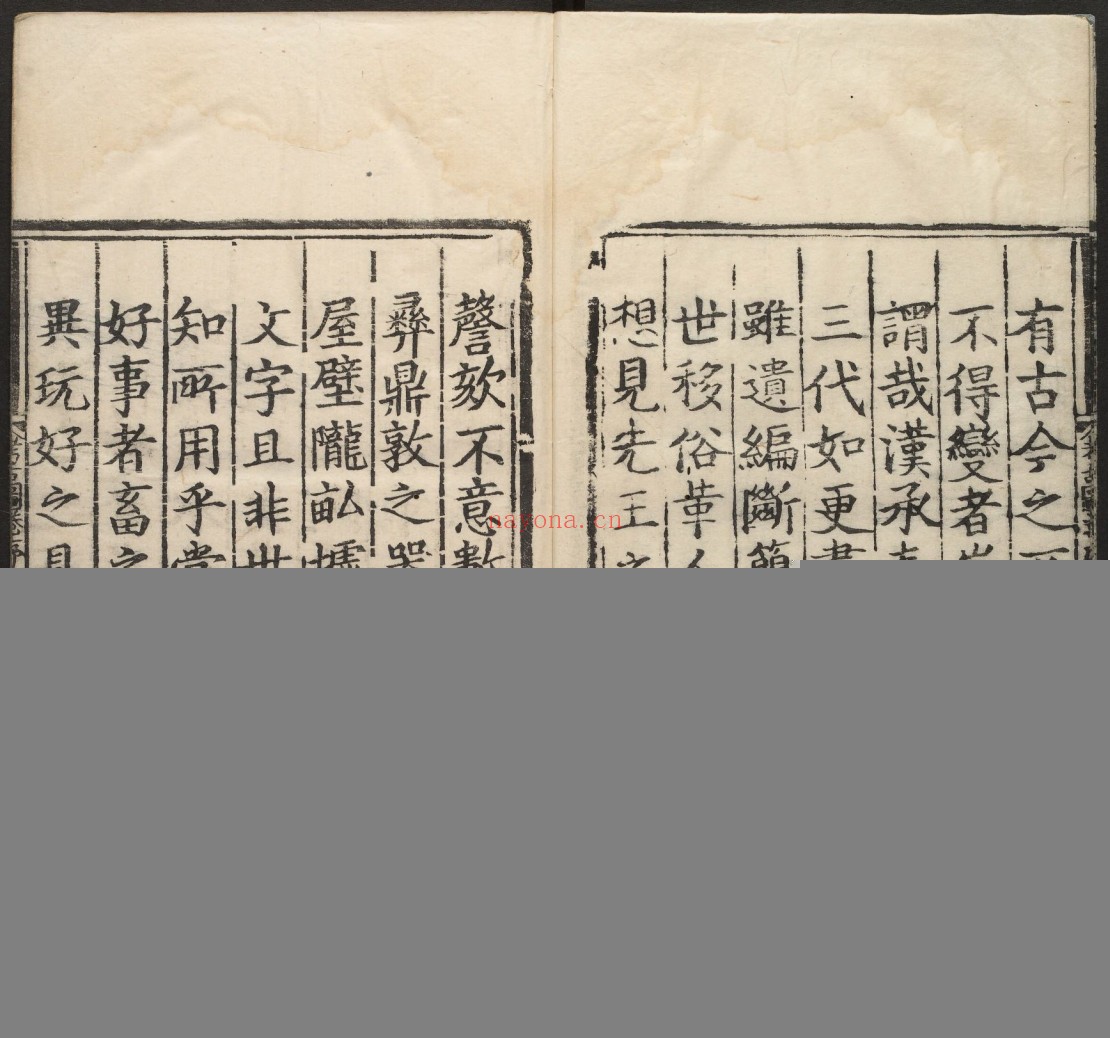 有古今之
不得變者
謂哉漢承
三代如更
雖遺編斷簡
世移俗革人
想見先王之
謦欬不意數
彝鼎敦之器
屋壁隴畝墟
文字且非世
知所用乎當
好事者畜之
異玩好之具
nayona.cn